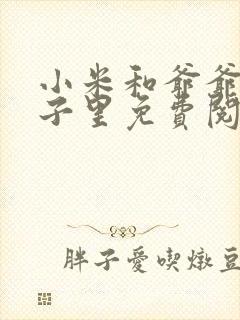 小米和爺爺
子里免費閱
胖子愛喫燉豆